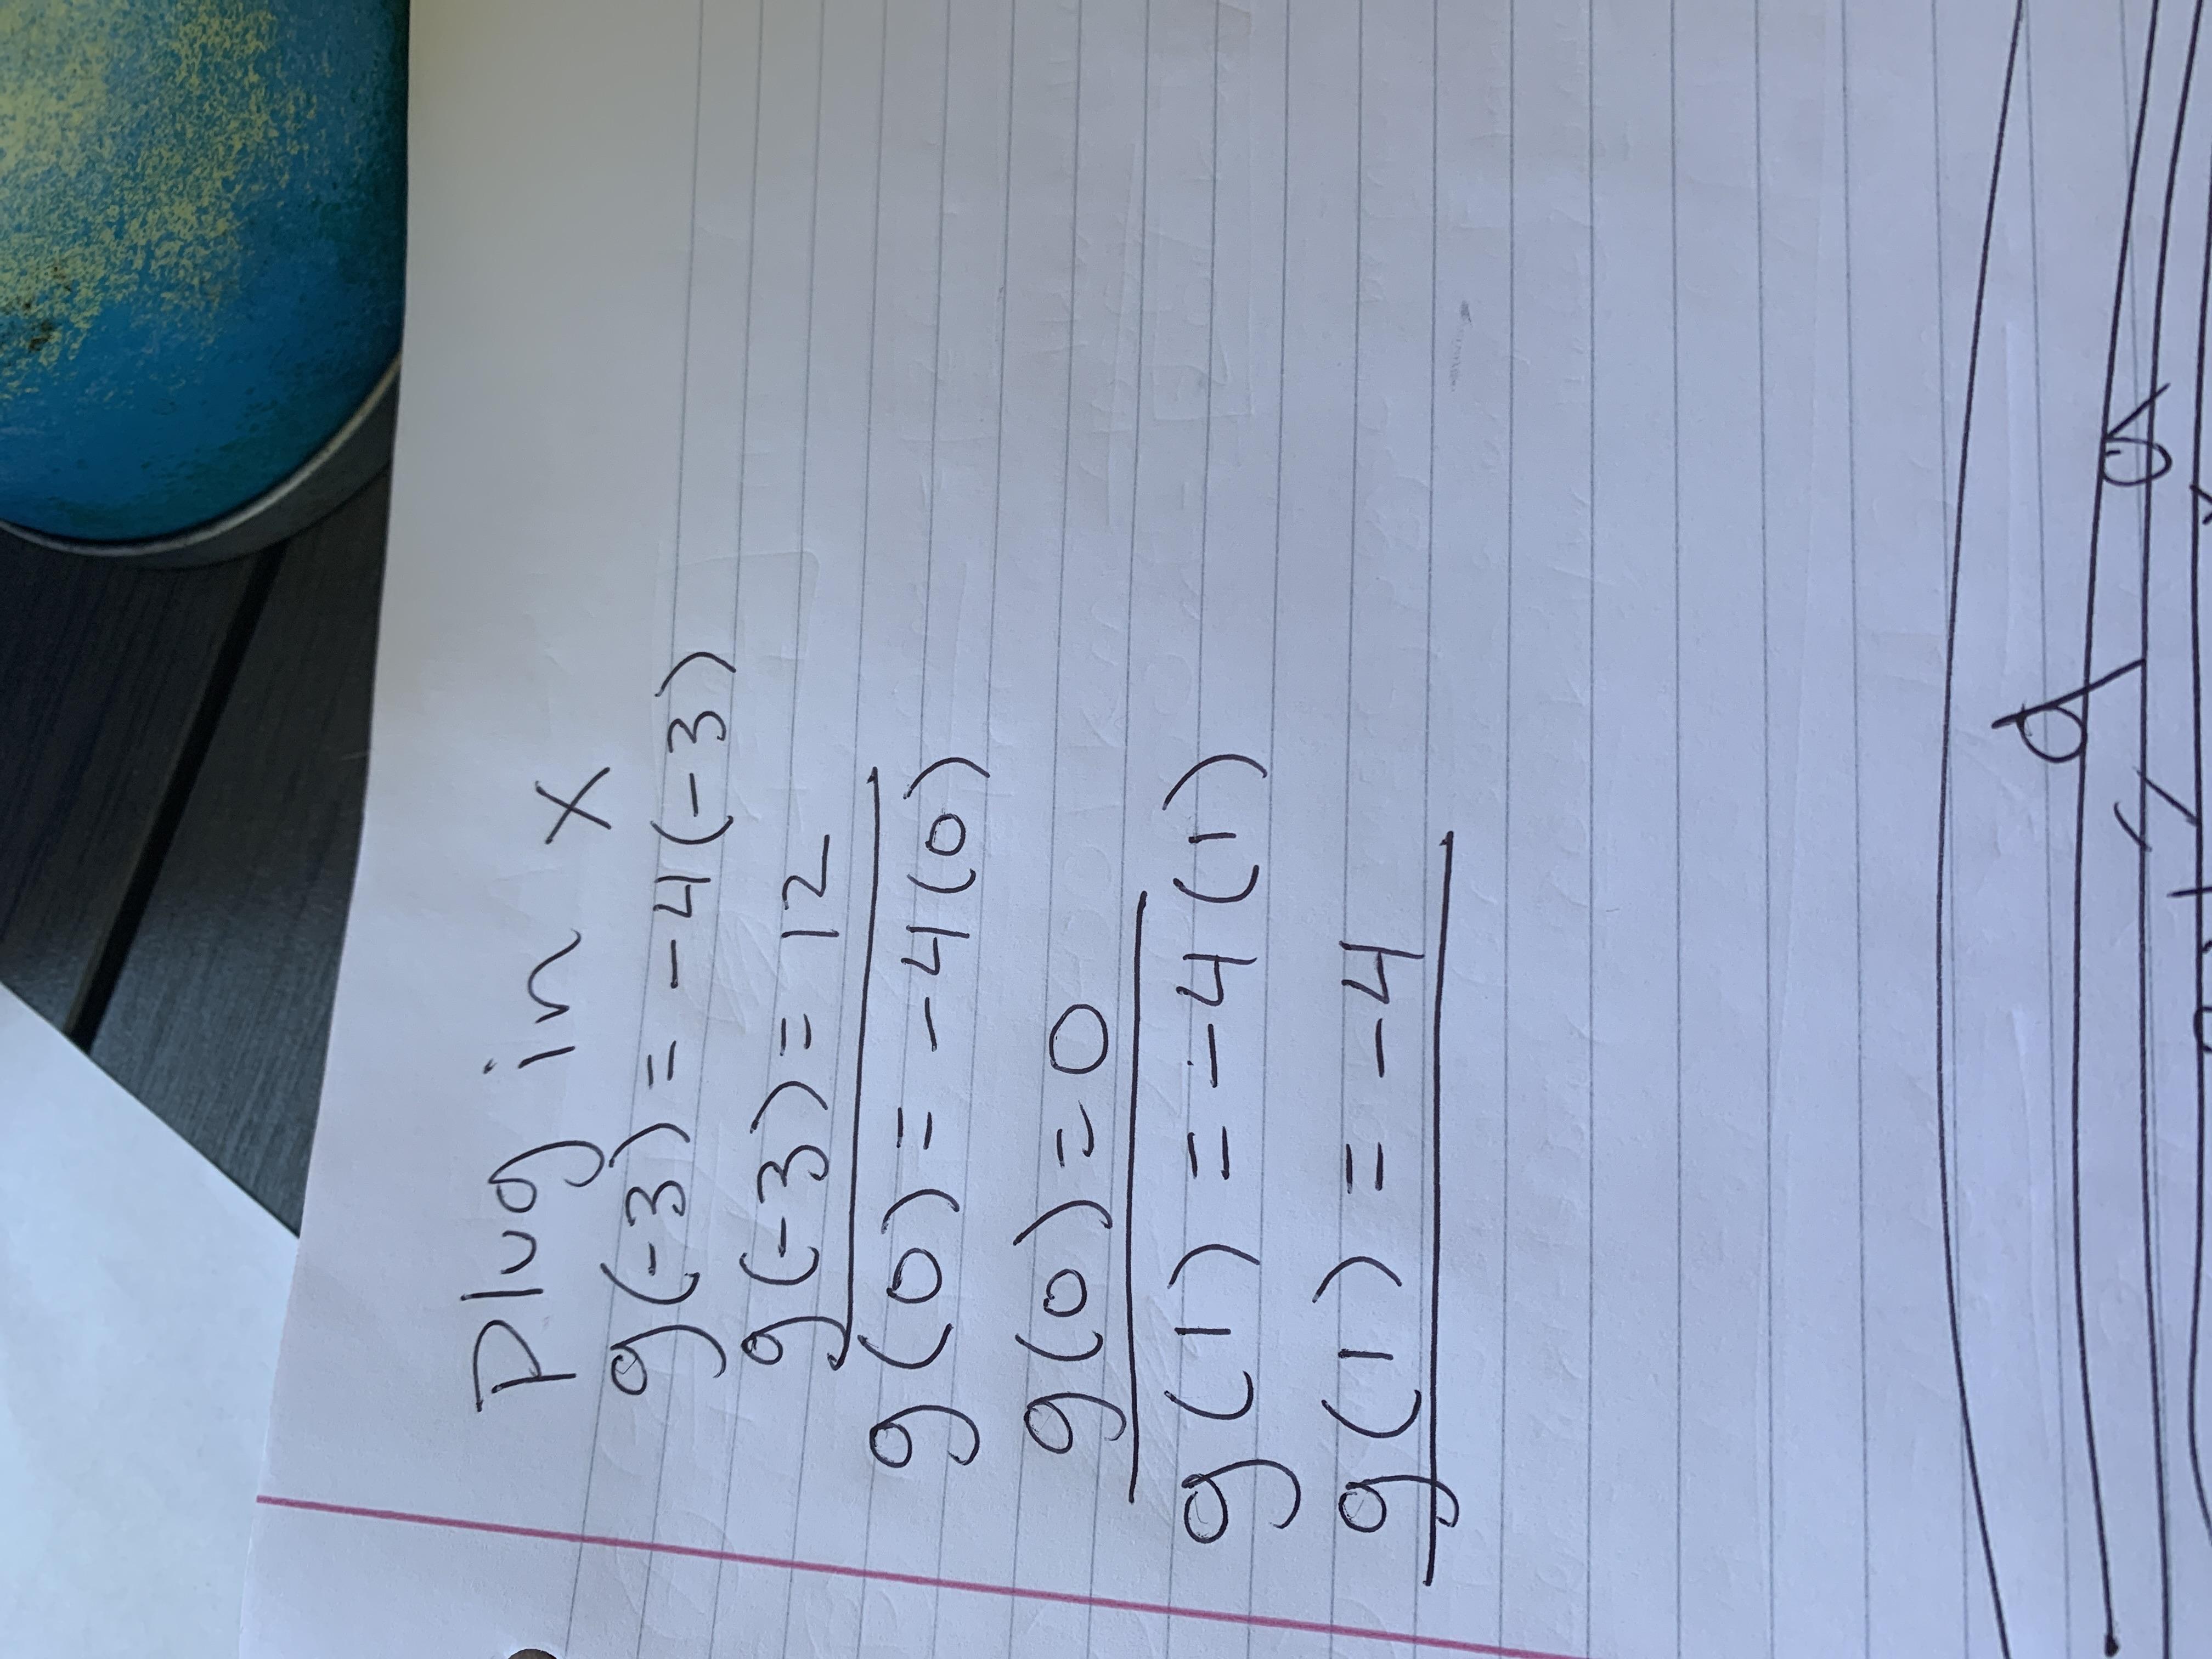 Plug in x
g(-3) = -4(-3)
g(-3) = 12
g(0) = -4(0)
g(0) = 0
g(1) = -4(1)
g(1) = -4